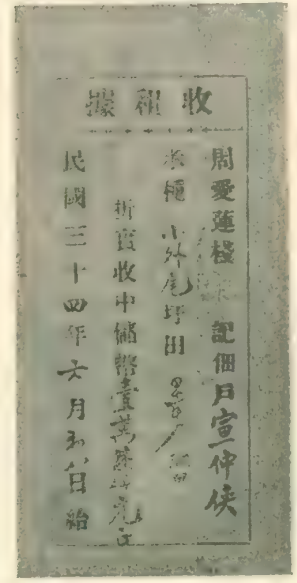 收租據
周愛蓮棧 記佃戶宣仲俠
承種 小外尾坪田
折實收中儲幣壹萬 元正
民國三十四年六月 日給